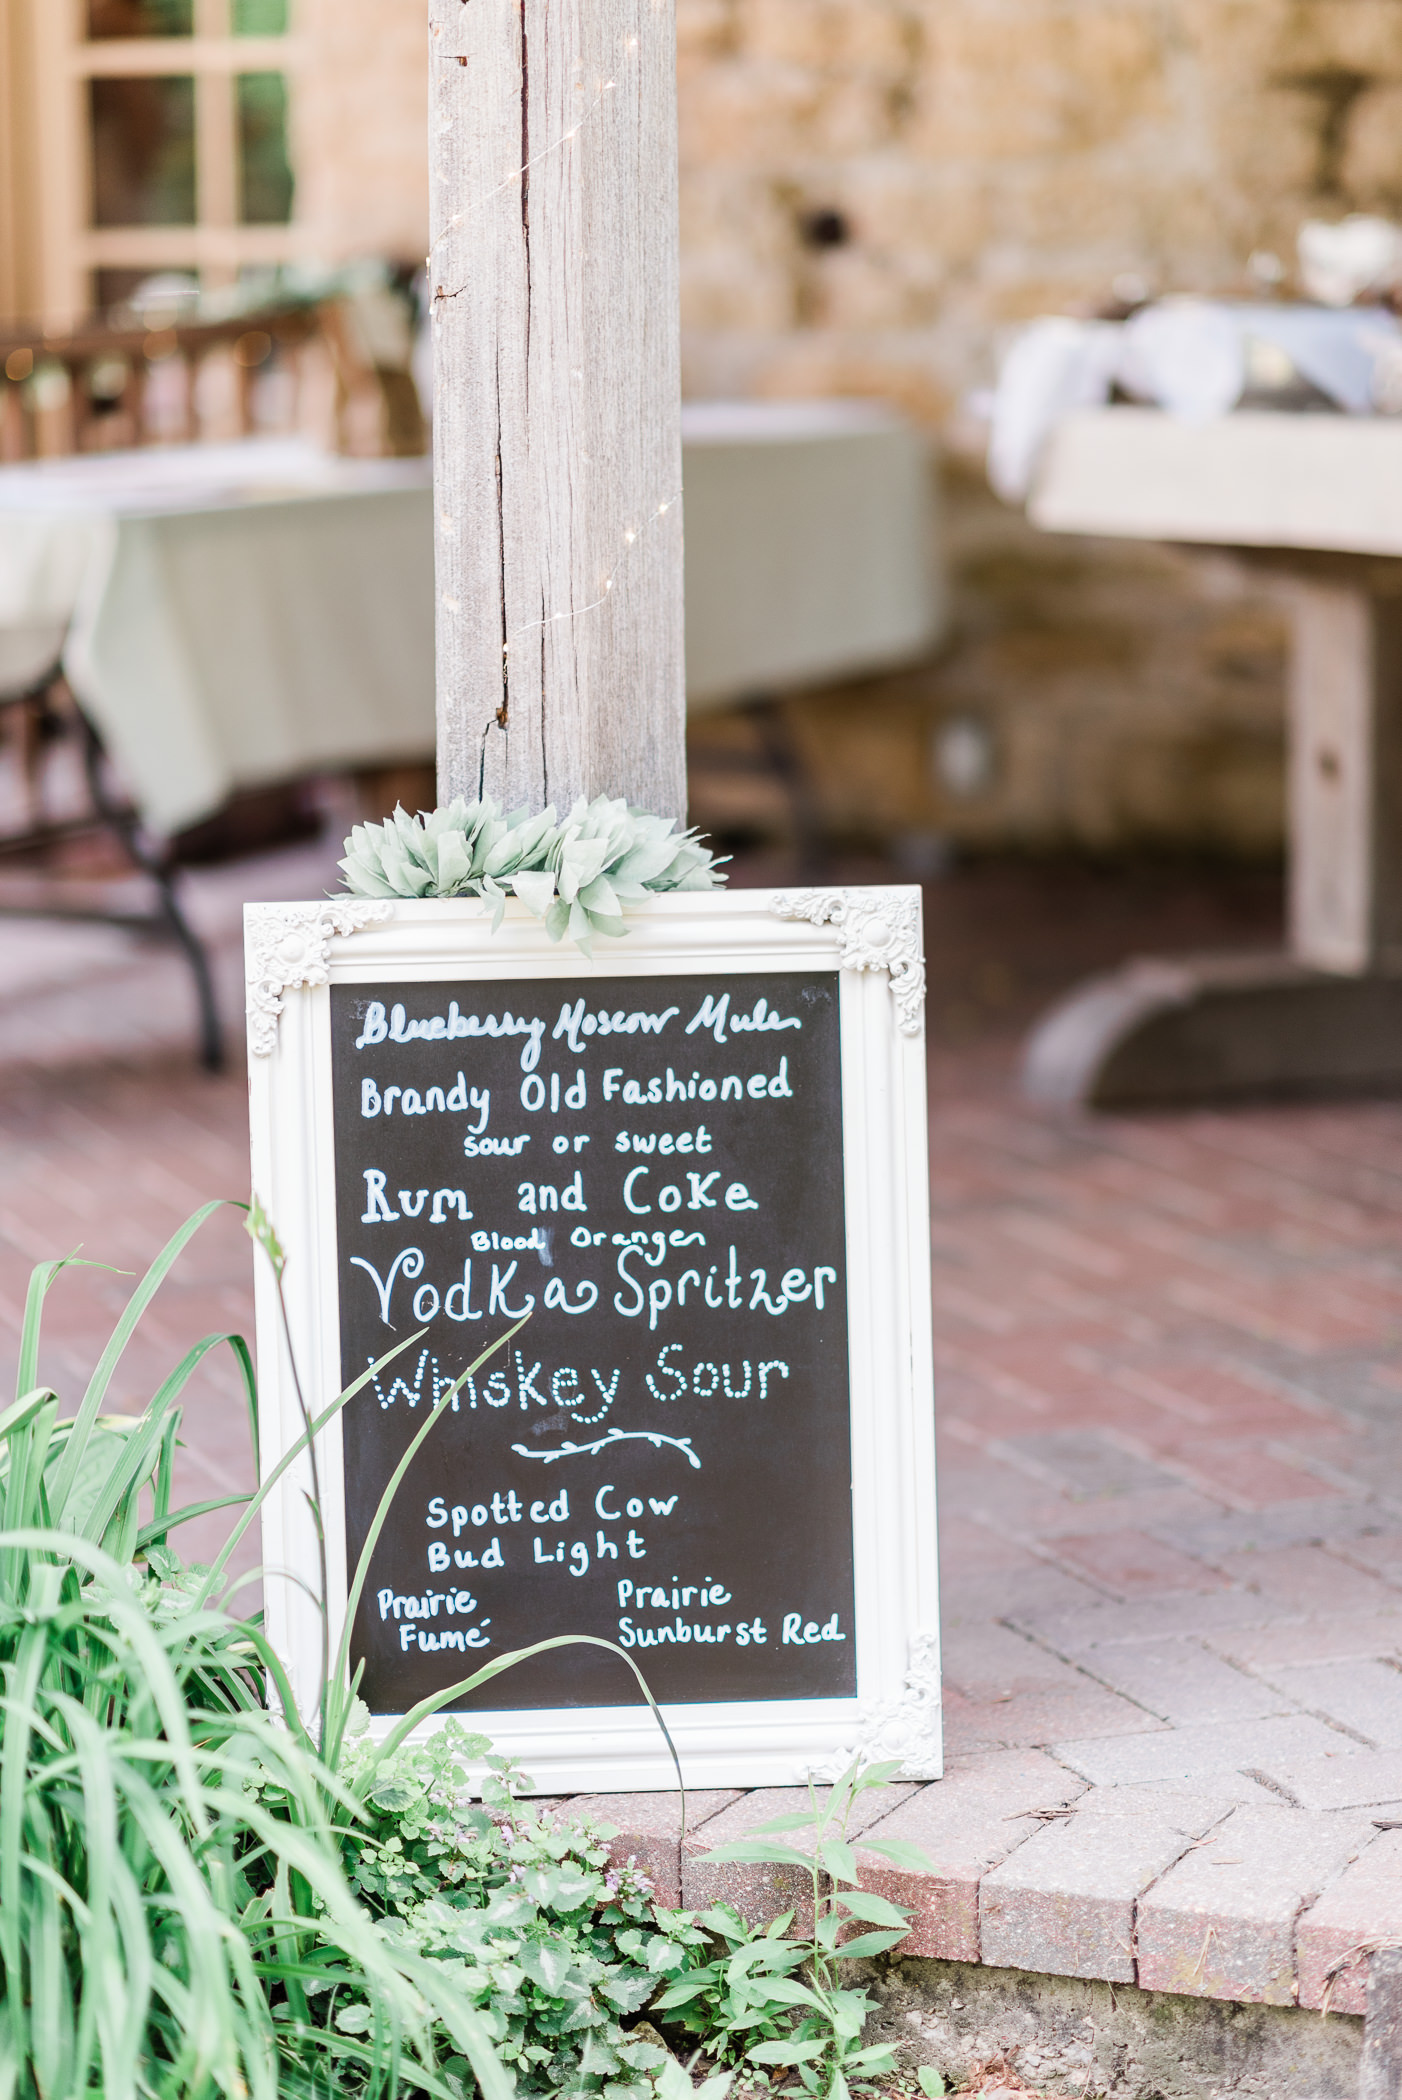 Blueberry Moscow Mule
Brandy Old Fashioned
sour or sweet
Rum and Coke
Blood Orange
Vodka Spritzer
Whiskey Sour
Spotted Cow
Bud Light
Prairie Fumé
Prairie Sunburst Red